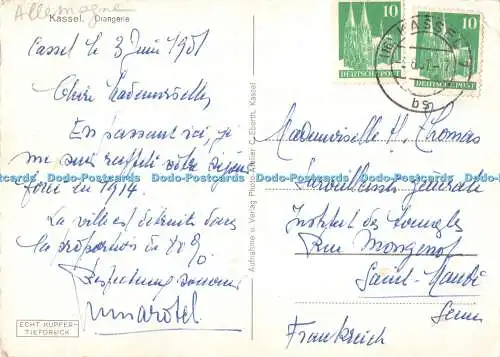 Allemagne
Kassel. Orangerie
Cassel le 3 Juin 1951
Chère Mademoiselle,
En passant ici, je
me suis rappelé votre séjour
forcé en 1914.
La ville est détruite dans
la proportion de
Respectueux
ECHT KUPFER-
TIEFDRUCK
Aufnahme u. Verlag
Eberth, Kassel
10
DEUTSCHE POST
10
DEUTSCHE POST
(16) KASSEL
Mademoiselle H. Thomas
Surveillante générale
Institut des
Rue Mongenot
Saint-Mandé
Seine
Frankreich
Dodo-Postcards Dodo-Postcards Dodo-Postcards Dodo-Postcards